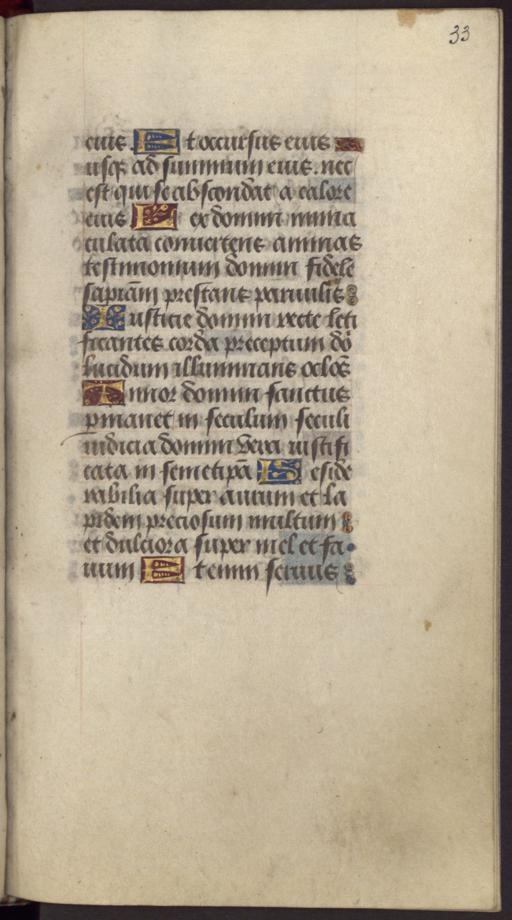 33
eius. Et occursus eius
usq; ad summum eius. nec
est qui se abscondat a calore
eius Lex domini imma
culata convertens animas
testimonium domini fidele
sapiam prestans parvulis
Iusticie domini recte leti
ficantes corda preceptum do
lucidum illuminans oclos
Timor domini sanctus
pmanet in seculum seculi
iudicia domini vera iustifi
cata in semetipa Deside
rabilia super aurum et la
pidem preciosum multum
et dulciora super mel et fa
uum Etenim seruus